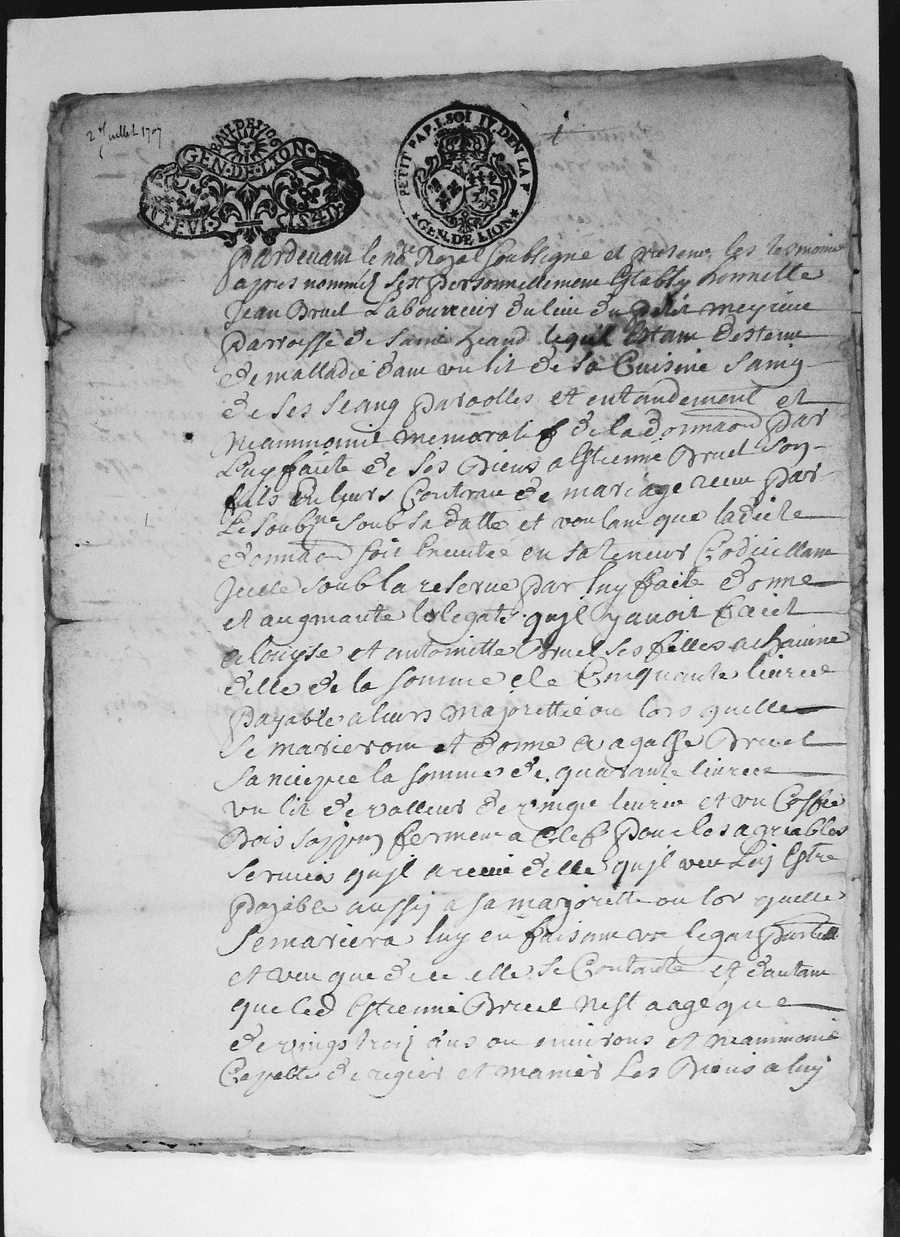 2e Juillet 1707
BAIL DE 1706
GEN. DE. LION.
PETIT PAP. I. SOL IV. DEN LA F
GEN. DE LION
pardevant le nre Royal soubsigne et presens les tesmoins
apres nommez sest personnellement estably honneste
Jean Bruel Laboureur du lieu du petit meyrieu
parroisse de Saint heand lequel estant destenu
de malladie dans un lit de sa Cuisine saing
de ses seang parolles et entandement et
Neammoint memoratif de la donnaon par
Luy faite de ses Biens a Estienne Bruel son
fils en leurs Contrat de mariage receu par
Le soubne soub sa datte et voulant que ladicte
donnaon soit executée en sa teneur Codicillant
Icelle soub la reserve par luy faite donne
et augmante les legats quil y avoit faict
a louyse et antoinette Bruel ses filles a chacune
delle de la somme de Cinquante livres
payable a leurs majorettée ou lors quelle
se marieront et donne a agathe Bruel
sa niepce la somme de quarante livres
un lit de valleur de vingt livres et un Coffre
Bois sappin fermant a Clef pour les agreables
services quil a receu delle quil veut luy estre
payable aussy a sa majorette ou lors quelle
se mariera luy en faisant un legat particulier
et veu que dicelle se Contante et dautant
que led Estienne Bruel nest aagé que
de vingt trois ans ou environs et neammoint
Capable de regier et manier Les Biens a luy